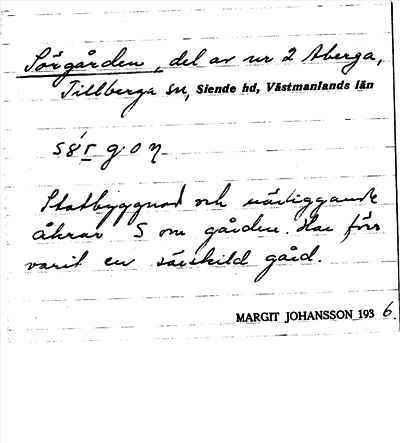 Sörgården, del av nr 2 Åberga,
Tillberga sn, Siende hd, Västmanlands län
s8́r gon
Statbyggnad och närliggande
åkrar S om gården. Har förr
varit en särskild gård.
MARGIT JOHANSSON 1936.